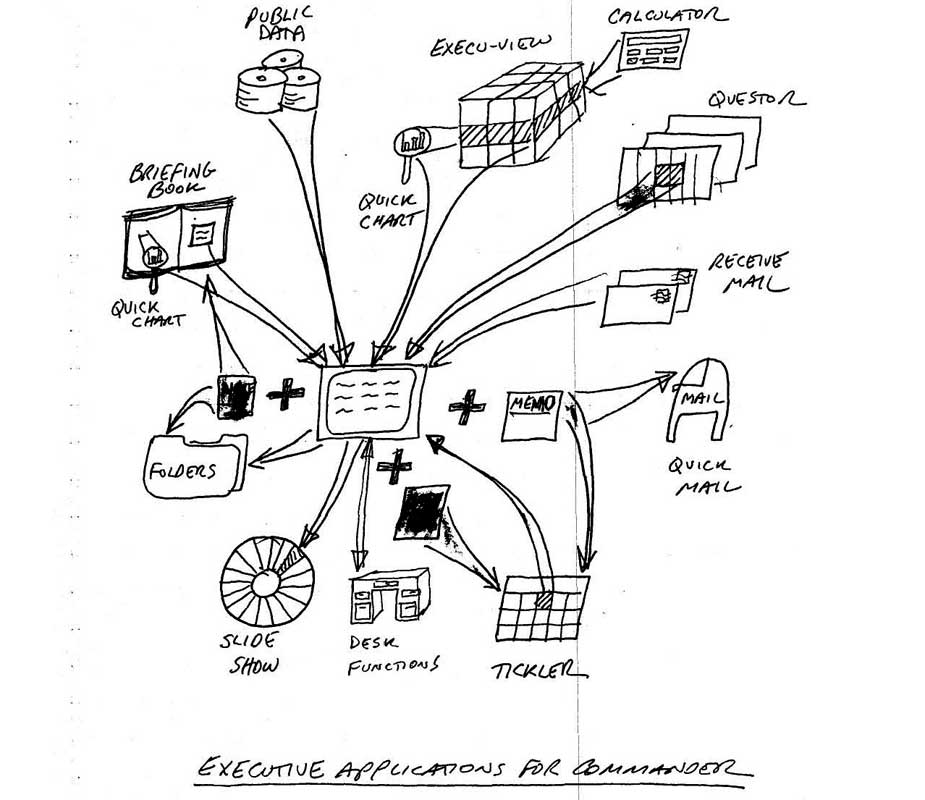 PUBLIC
DATA
EXECU-VIEW
CALCULATOR
QUESTOR
BRIEFING
BOOK
QUICK
CHART
QUICK
CHART
RECEIVE
MAIL
MEMO
MAIL
QUICK
MAIL
FOLDERS
SLIDE
SHOW
DESK
FUNCTIONS
TICKLER
EXECUTIVE APPLICATIONS FOR COMMANDER